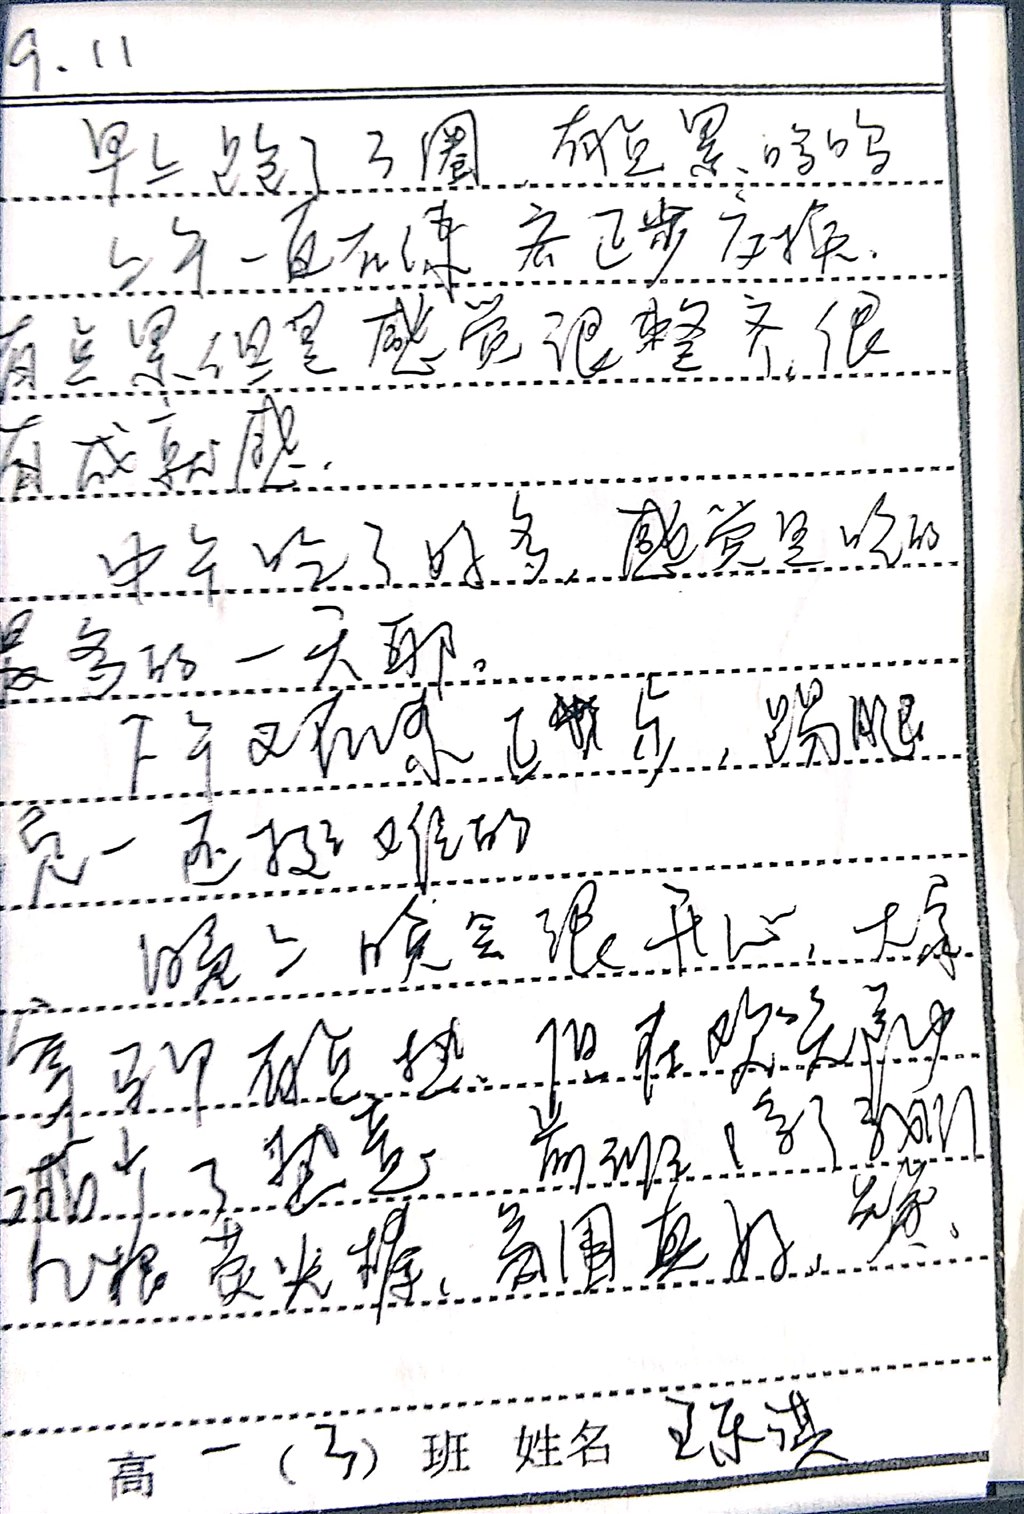 9.11
早上跑了3圈,有点累,呜呜
上午一直在练 齐正步 变换.
有点累,但是感觉很整齐,很
有成就感.
中午吃了好多,感觉是吃的
最多的一天耶。
下午又在练正步,踢腿
完一 还挺难的
晚上晚会很开心,大家
有点热,但在欢笑声中
减少了热意 前班 拿了我们
几根荧光棒,氛围真好,
高一(3)班 姓名 王乐淇